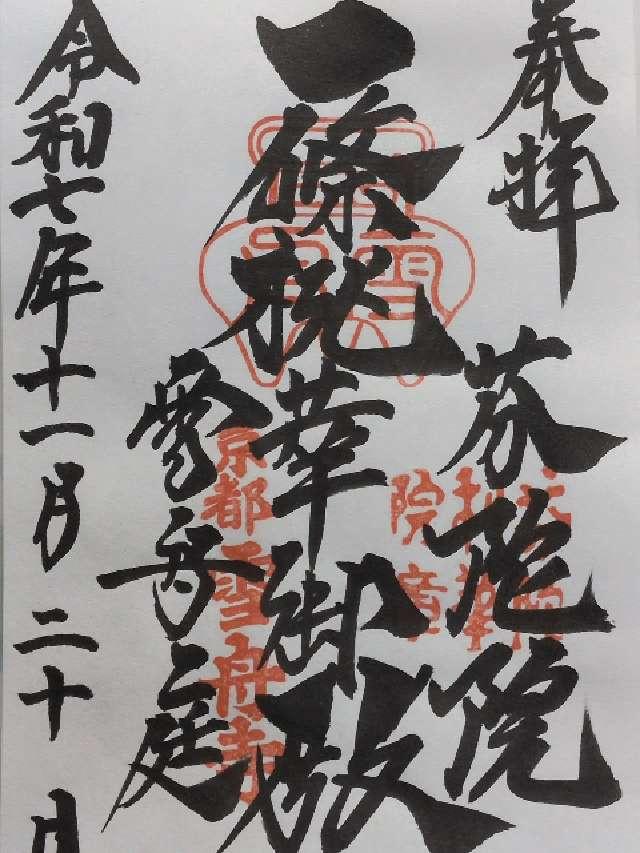 奉拝
芬陀院
一條桃華御殿
雪舟庭
令和七年十一月二十日
京都雪舟寺